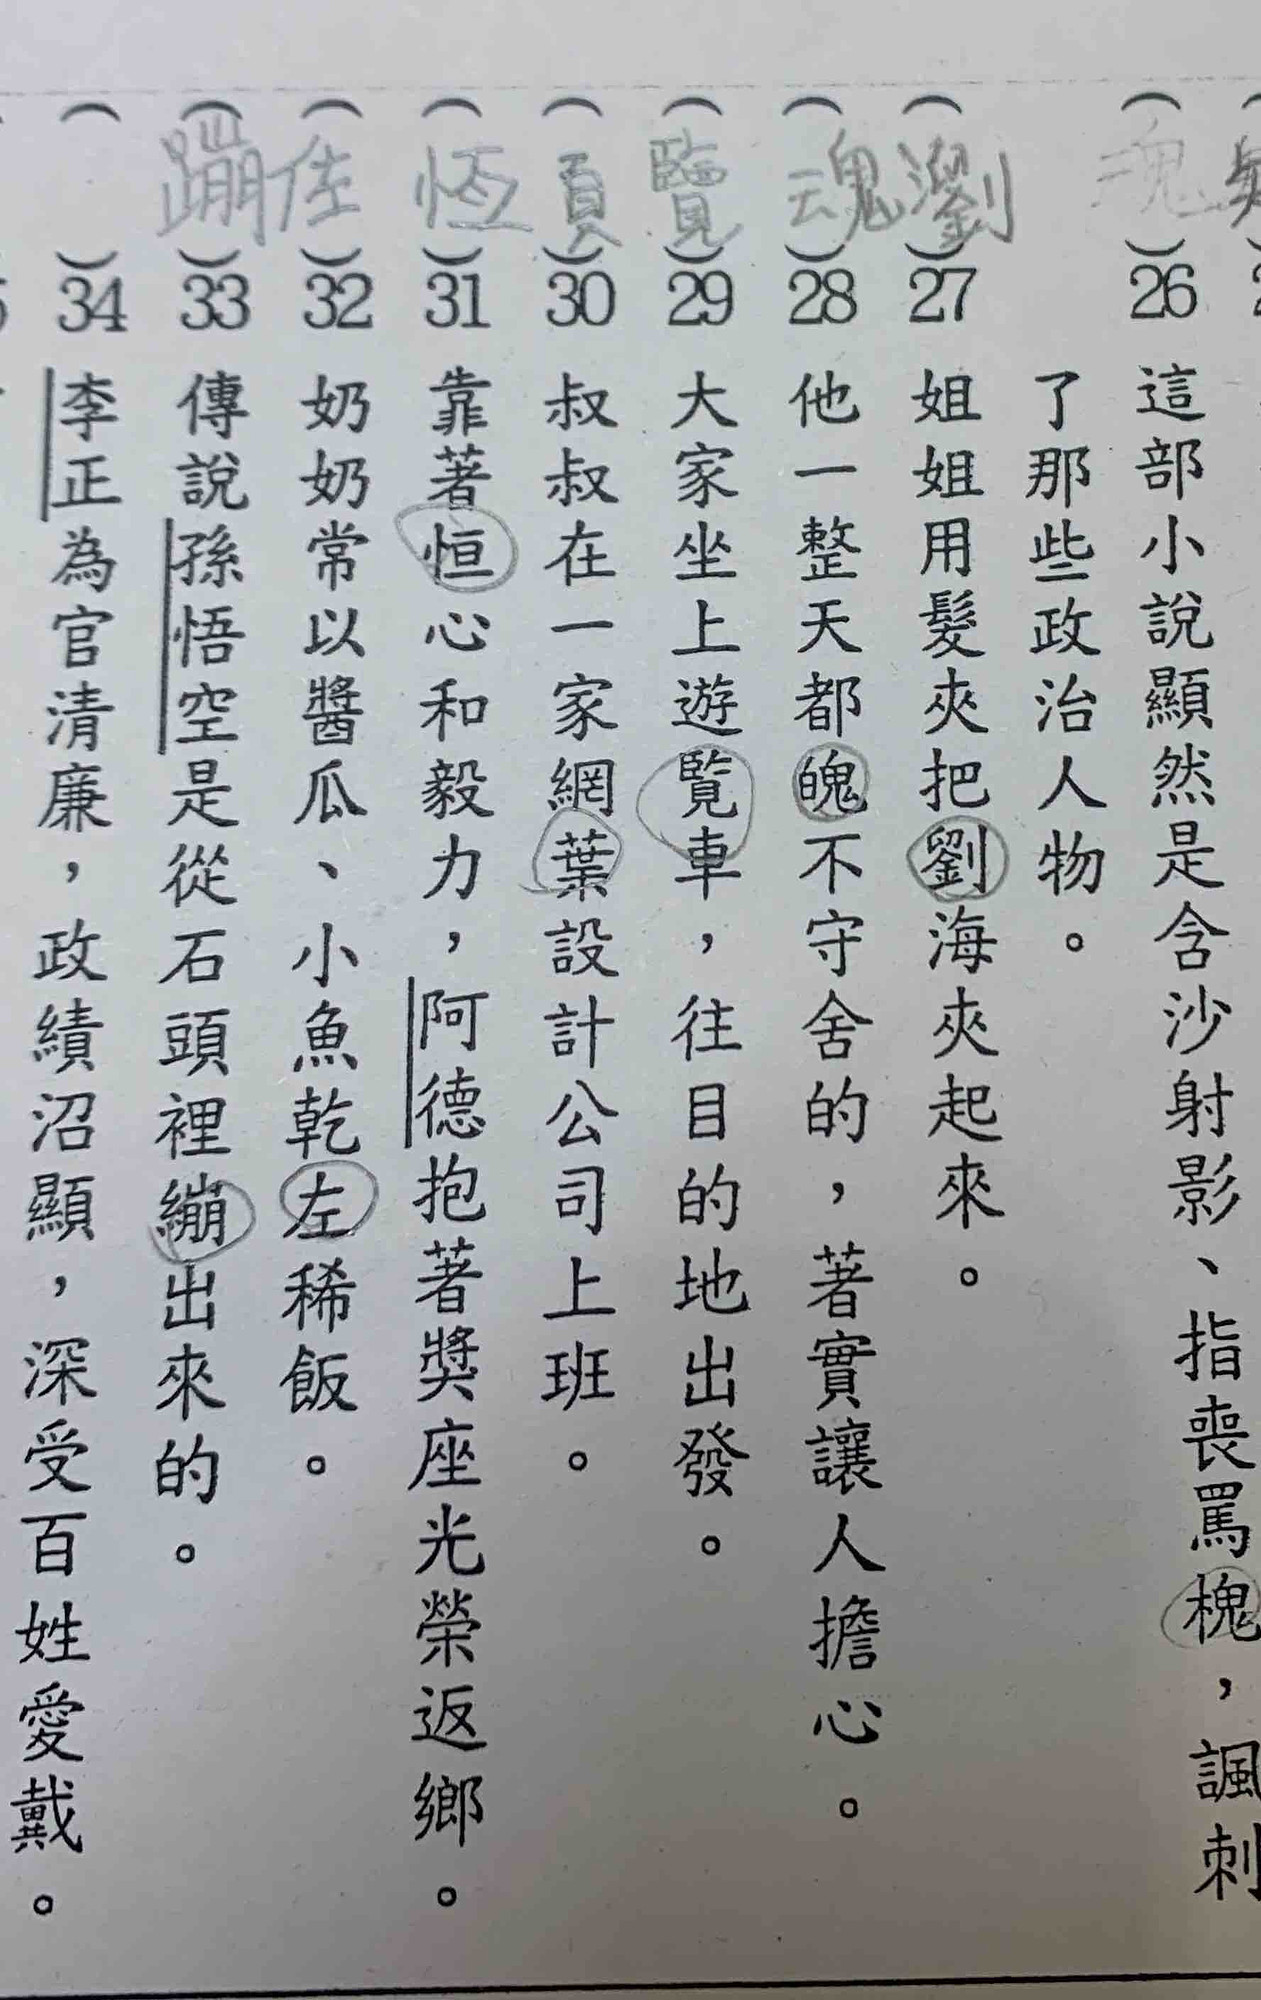 (魂)26這部小說顯然是含沙射影、指喪罵槐，諷刺
了那些政治人物。
(瀏)27姐姐用髮夾把劉海夾起來。
(魂)28他一整天都魄不守舍的，著實讓人擔心。
(覽)29大家坐上遊覧車，往目的地出發。
(頁)30叔叔在一家網葉設計公司上班。
(恆)31靠著恒心和毅力，阿德抱著獎座光榮返鄉。
(佐)32奶奶常以醬瓜、小魚乾左稀飯。
(蹦)33傳說孫悟空是從石頭裡繃出來的。
( )34李正為官清廉，政績沼顯，深受百姓愛戴。